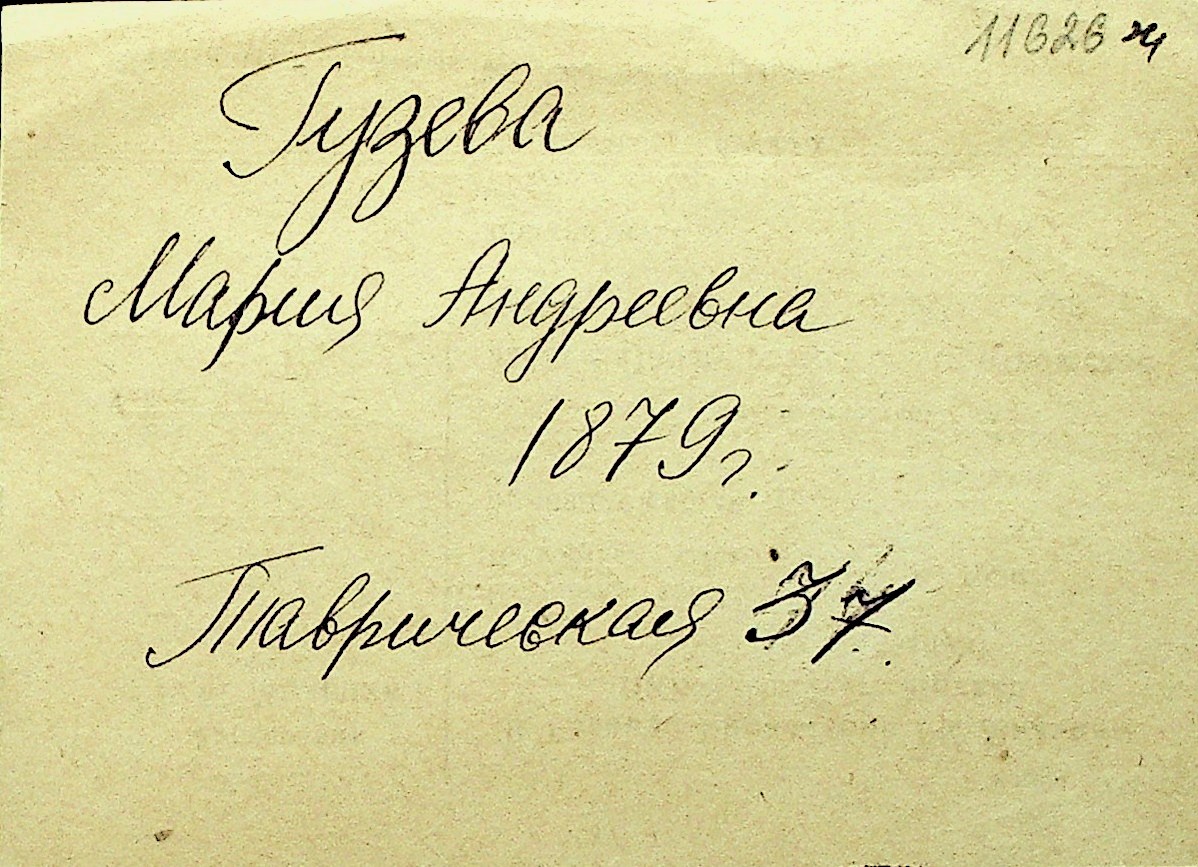 11626 ж
Гузева
Мария Андреевна
1879г.
Таврическая 37